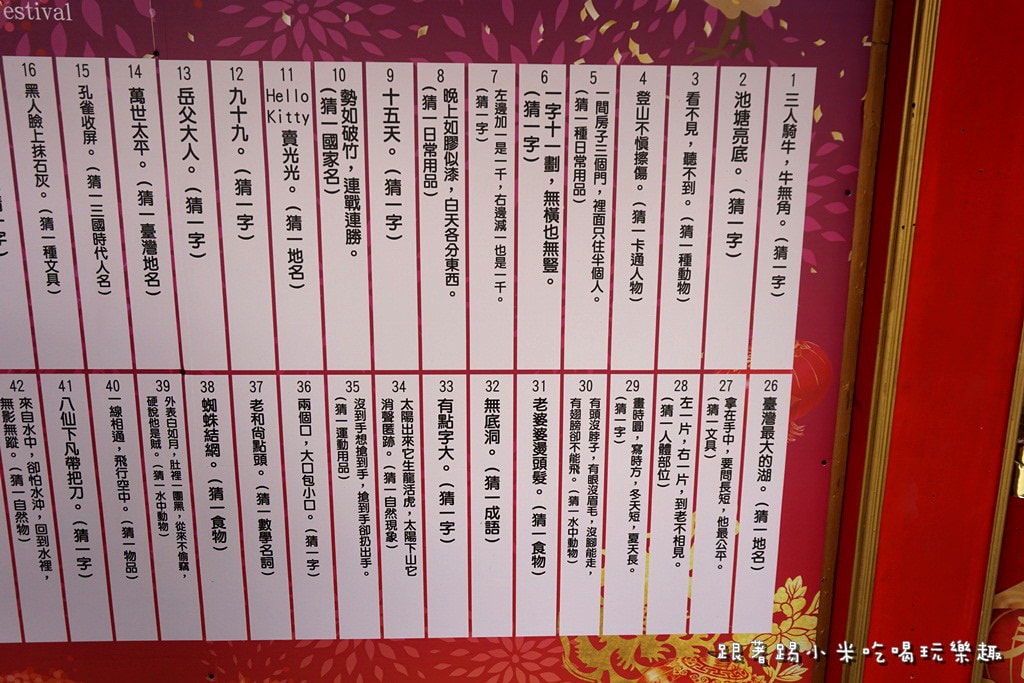 Festival
1 三人騎牛，牛無角。(猜一字)
2 池塘亮底。(猜一字)
3 看不見，聽不到。(猜一種動物)
4 登山不慎擦傷。(猜一卡通人物)
5 一間房子三個門，裡面只住半個人。
(猜一種日常用品)
6 一字十一劃，無橫也無豎。
(猜一字)
7 左邊加一是一千，右邊減一也是一千。
(猜一字)
8 晚上如膠似漆，白天各分東西。
(猜一日常用品)
9 十五天。(猜一字)
10 勢如破竹，連戰連勝。
(猜一國家名)
11 Hello Kitty 賣光光。(猜一地名)
12 九十九。(猜一字)
13 岳父大人。(猜一字)
14 萬世太平。(猜一臺灣地名)
15 孔雀收屏。(猜一三國時代人名)
16 黑人臉上抹石灰。(猜一種文具)
26 臺灣最大的湖。(猜一地名)
27 拿在手中，要問長短，他最公平。
(猜一文具)
28 左一片，右一片，到老不相見。
(猜一人體部位)
29 畫時圓，寫時方，冬天短，夏天長。
(猜一字)
30 有頭沒脖子，有眼沒眉毛，沒腳能走，
有翅膀卻不能飛。(猜一水中動物)
31 老婆婆燙頭髮。(猜一食物)
32 無底洞。(猜一成語)
33 有點字大。(猜一字)
34 太陽出來它生龍活虎，太陽下山它
消聲匿跡。(猜一自然現象)
35 沒到手想搶到手，搶到手卻扔出手。
(猜一運動用品)
36 兩個口，大口包小口。(猜一字)
37 老和尚點頭。(猜一數學名詞)
38 蜘蛛結網。(猜一食物)
39 外表白如月，肚裡一團黑，從來不偷竊，
硬說他是賊。(猜一水中動物)
40 一線相通，飛行空中。(猜一物品)
41 八仙下凡帶把刀。(猜一字)
42 來自水中，卻怕水沖，回到水裡，
無影無蹤。(猜一自然物)
跟著踢小米吃喝玩樂趣